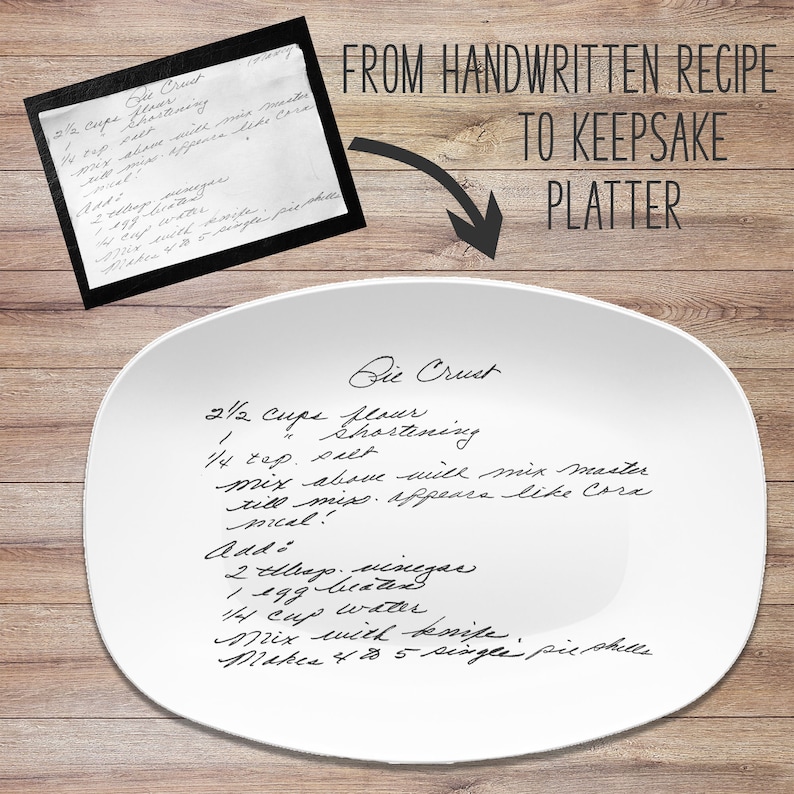 (Nancy)
Pie Crust
2 1/2 cups flour
1 " shortening
1/4 tsp. salt
mix above with mix master
till mix. appears like corn
meal!
Add:
2 tblsp. vinegar
1 egg beaten
1/4 cup water
Mix with knife.
Makes 4 to 5 single pie shells
FROM HANDWRITTEN RECIPE
TO KEEPSAKE
PLATTER
Pie Crust
2 1/2 cups flour
1 " shortening
1/4 tsp. salt
mix above with mix master
till mix. appears like corn
meal!
Add:
2 tblsp. vinegar
1 egg beaten
1/4 cup water
Mix with knife.
Makes 4 to 5 single pie shells